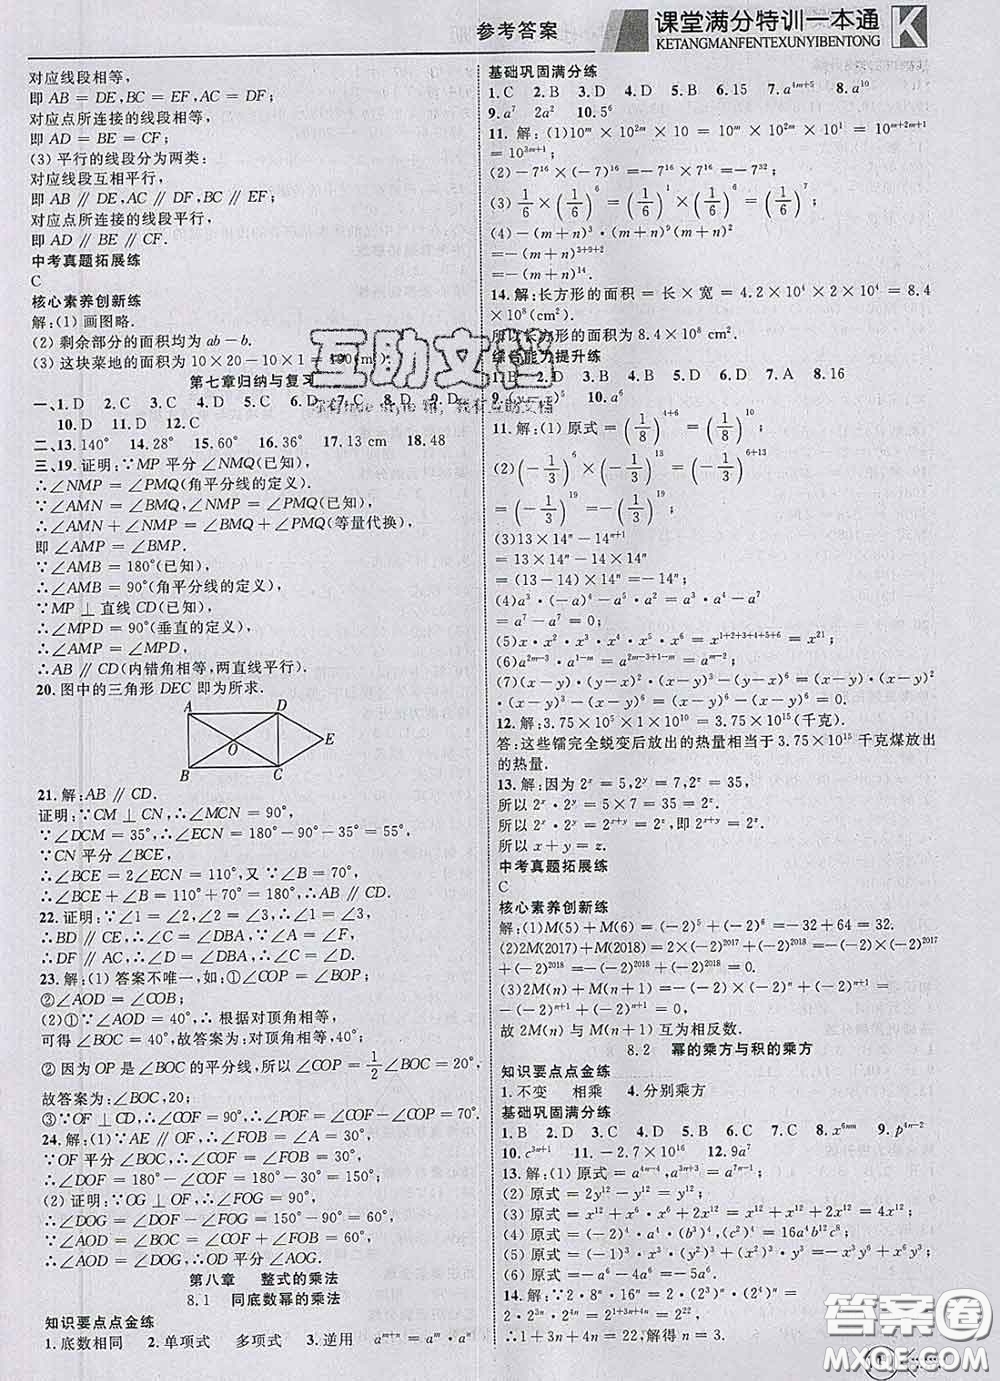 参考答案
课堂满分特训一本通
KETANGMANFENTEXUNYIBENTONG
K
对应线段相等,
即 AB = DE,BC = EF,AC = DF;
对应点所连接的线段相等,
即 AD = BE = CF;
(3) 平行的线段分为两类:
对应线段互相平行,
即 AB ∥ DE,AC ∥ DF,BC ∥ EF;
对应点所连接的线段平行,
即 AD ∥ BE ∥ CF.
中考真题拓展练
C
核心素养创新练
解:(1) 画图略.
(2) 剩余部分的面积均为 ab − b.
(3) 这块菜地的面积为 10 × 20 − 10 × 1 = 190(m²).
第七章归纳与复习
一、1. D 2. C 3. C 4. C 5. C 6. D 7. C 8. C 9. D
10. D 11. D 12. C
二、13. 140° 14. 28° 15. 60° 16. 36° 17. 13 cm 18. 48
三、19. 证明:∵ MP 平分 ∠NMQ(已知),
∴ ∠NMP = ∠PMQ(角平分线的定义).
∵ ∠AMN = ∠BMQ,∠NMP = ∠PMQ(已知),
∴ ∠AMN + ∠NMP = ∠BMQ + ∠PMQ(等量代换),
即 ∠AMP = ∠BMP.
∵ ∠AMB = 180°(已知),
∴ ∠AMB = 90°(角平分线的定义),
∵ MP ⊥ 直线 CD(已知),
∴ ∠MPD = 90°(垂直的定义),
∴ ∠AMP = ∠MPD,
∴ AB ∥ CD(内错角相等,两直线平行).
20. 图中的三角形 DEC 即为所求.
A D
O E
B C
21. 解:AB ∥ CD.
证明:∵ CM ⊥ CN,∴ ∠MCN = 90°,
∵ ∠DCM = 35°,∴ ∠ECN = 180° − 90° − 35° = 55°,
∵ CN 平分 ∠BCE,
∴ ∠BCE = 2∠ECN = 110°,又 ∵ ∠B = 70°,
∴ ∠BCE + ∠B = 110° + 70° = 180°,∴ AB ∥ CD.
22. 证明:∵ ∠1 = ∠2,∠2 = ∠3,∴ ∠1 = ∠3,
∴ BD ∥ CE,∴ ∠C = ∠DBA,∵ ∠A = ∠F,
∴ DF ∥ AC,∴ ∠D = ∠DBA,∴ ∠C = ∠D.
23. 解:(1) 答案不唯一,如:① ∠COP = ∠BOP;
② ∠AOD = ∠COB;
(2) ① ∵ ∠AOD = 40°,∴ 根据对顶角相等,
可得 ∠BOC = 40°,故答案为:对顶角相等,40°;
② 因为 OP 是 ∠BOC 的平分线,所以 ∠COP = 1/2 ∠BOC = 20°,
故答案为:∠BOC,20;
③ ∵ OF ⊥ CD,∴ ∠COF = 90°,∴ ∠POF = ∠COF − ∠COP = 70°.
24. 解:(1) ∵ AE ∥ OF,∴ ∠FOB = ∠A = 30°,
∵ OF 平分 ∠BOC,∴ ∠COF = ∠FOB = 30°,
∴ ∠DOF = 180° − ∠COF = 150°;
(2) 证明:∵ OG ⊥ OF,∴ ∠FOG = 90°,
∴ ∠DOG = ∠DOF − ∠FOG = 150° − 90° = 60°,
∵ ∠AOD = ∠BOC = ∠COF + ∠FOB = 60°,
∴ ∠AOD = ∠DOG,∴ OD 平分 ∠AOG.
第八章 整式的乘法
8.1 同底数幂的乘法
知识要点点金练
1. 底数相同 2. 单项式 多项式 3. 逆用 aᵐ⁺ⁿ = aᵐ · aⁿ
基础巩固满分练
1. C 2. B 3. D 4. D 5. D 6. 15 7. a⁴ᵐ⁺⁵ 8. a¹⁰
9. a⁷ 2a² 10. 5⁶
11. 解:(1) 10ᵐ × 10²ᵐ × 10 = 10ᵐ × 10²ᵐ × 10¹ = 10ᵐ⁺²ᵐ⁺¹
= 10³ᵐ⁺¹;
(2) −7¹⁶ × (−7)¹⁶ = −7¹⁶ × 7¹⁶ = −7³²;
(3) 1/6 × (1/6)⁶ = (1/6)¹ × (1/6)⁶ = (1/6)⁷;
(4) −(m + n)³ · (m + n)⁹(m + n)²
= −(m + n)³⁺⁹⁺²
= −(m + n)¹⁴.
14. 解:长方形的面积 = 长 × 宽 = 4.2 × 10⁴ × 2 × 10⁴ = 8.4 ×
10⁸(cm²).
所以长方形的面积为 8.4 × 10⁸ cm².
综合能力提升练
1. B 2. D 3. A 4. C 5. D 6. D 7. A 8. 16
10. a⁶
11. 解:(1) 原式 = (1/8)⁴⁺⁶ = (1/8)¹⁰;
(2) (−1/3)⁶ × (−1/3)¹³ = (−1/3)⁶⁺¹³
= (−1/3)¹⁹ = −(1/3)¹⁹;
(3) 13 × 14ⁿ − 14ⁿ⁺¹
= 13 × 14ⁿ − 14 × 14ⁿ
= (13 − 14) × 14ⁿ = −14ⁿ;
(4) a³ · (−a)⁴ − a · a² · a⁴ = a³ · a⁴ − a⁷
= a⁷ − a⁷ = 0;
(5) x · x² · x³ · x⁴ · x⁵ · x⁶ = x¹⁺²⁺³⁺⁴⁺⁵⁺⁶ = x²¹;
(6) a²ᵐ⁻³ · a¹⁻ᵐ = a²ᵐ⁻³⁺¹⁻ᵐ = aᵐ⁻²;
(7) (x − y) · (y − x)² · (y − x)³ = (x − y) · (x − y)² · (x −
y)³ − (x − y)³ · (x − y)³ = (x − y)⁶ − (x − y)⁶ = 0.
12. 解:3.75 × 10⁵ × 1 × 10¹⁰ = 3.75 × 10¹⁵(千克).
答:这些镭完全蜕变后放出的热量相当于 3.75 × 10¹⁵ 千克煤放出
的热量.
13. 解:因为 2ˣ = 5,2ʸ = 7,2ᶻ = 35,
所以 2ˣ · 2ʸ = 5 × 7 = 35 = 2ᶻ.
所以 2ˣ · 2ʸ = 2ˣ⁺ʸ = 2ᶻ,即 2ˣ⁺ʸ = 2ᶻ.
所以 x + y = z.
中考真题拓展练
C
核心素养创新练
解:(1) M(5) + M(6) = (−2)⁵ + (−2)⁶ = −32 + 64 = 32.
(2) 2M(2017) + M(2018) = 2 × (−2)²⁰¹⁷ + (−2)²⁰¹⁸ = −(−2) × (−2)²⁰¹⁷
+ (−2)²⁰¹⁸ = −(−2)²⁰¹⁸ + (−2)²⁰¹⁸ = 0.
(3) 2M(n) + M(n + 1) = −(−2) × (−2)ⁿ + (−2)ⁿ⁺¹ =
−(−2)ⁿ⁺¹ + (−2)ⁿ⁺¹ = 0.
故 2M(n) 与 M(n + 1) 互为相反数.
8.2 幂的乘方与积的乘方
知识要点点金练
1. 不变 相乘 4. 分别乘方
基础巩固满分练
1. B 2. D 3. C 4. D 5. C 6. B 7. C 8. x⁶ᵐⁿ 9. p⁴ⁿ⁻²
10. c³ⁿ⁺¹ 11. −2.7 × 10¹⁶ 12. 9a²
13. 解:(1) 原式 = a⁴ⁿ⁻⁴,a³ⁿ⁺³ = a⁷ⁿ⁻¹;
(2) 原式 = 2y¹² − y¹² = y¹²;
(3) 原式 = x¹² + x⁶ · x⁶ + 2x¹² = x¹² + x¹² + 2x¹² = 4x¹²;
(4) 原式 = (−2)⁴ · (a²)⁴ · (−b)⁴,(c²)⁴ = 16a⁸b⁴c⁸;
(5) 原式 = −x³ · (y²)³ + x³y⁶ = −x³y⁶ + x³y⁶ = 0;
(6) 原式 = −a⁶ − 4a⁶ = −5a⁶.
14. 解:∵ 2 · 8ⁿ · 16ⁿ = 2²²,
2 · 2³ⁿ · 2⁴ⁿ = 2¹⁺³ⁿ⁺⁴ⁿ = 2²²,
∴ 1 + 3n + 4n = 22,解得 n = 3.
互助文档
答案圈
MXQE.COM